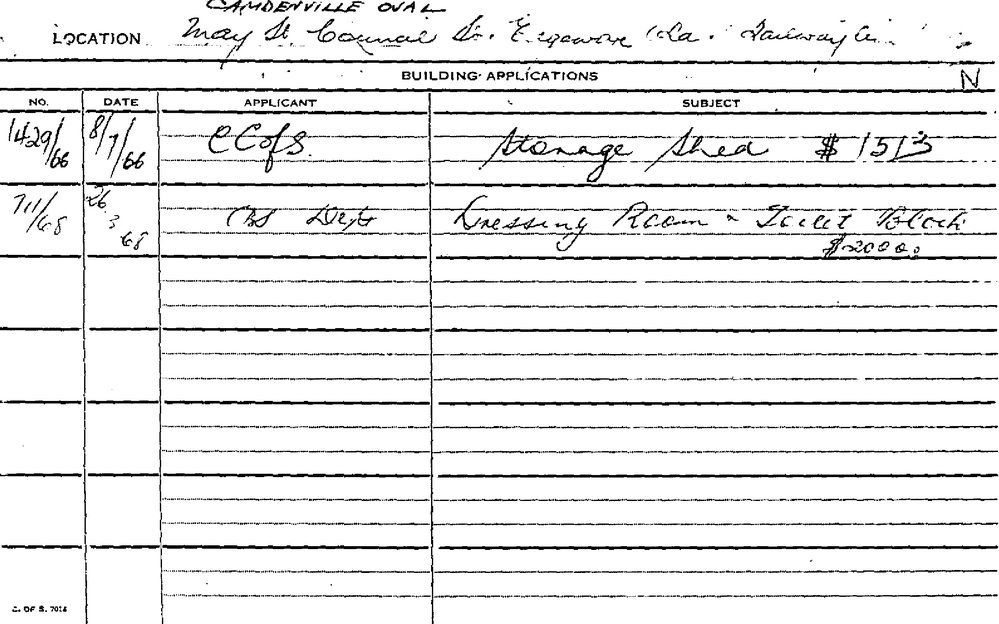 CAMDENVILLE OVAL
LOCATION May St. Council St. Edgeware Rd. Railway Li.
BUILDING APPLICATIONS N
NO. DATE APPLICANT SUBJECT
1429/66 8/7/66 CCofS. Storage Shed $1513
711/68 26.3.68 CBS Dept Dressing Room & Toilet Block
$2000.
C. OF S. 7018